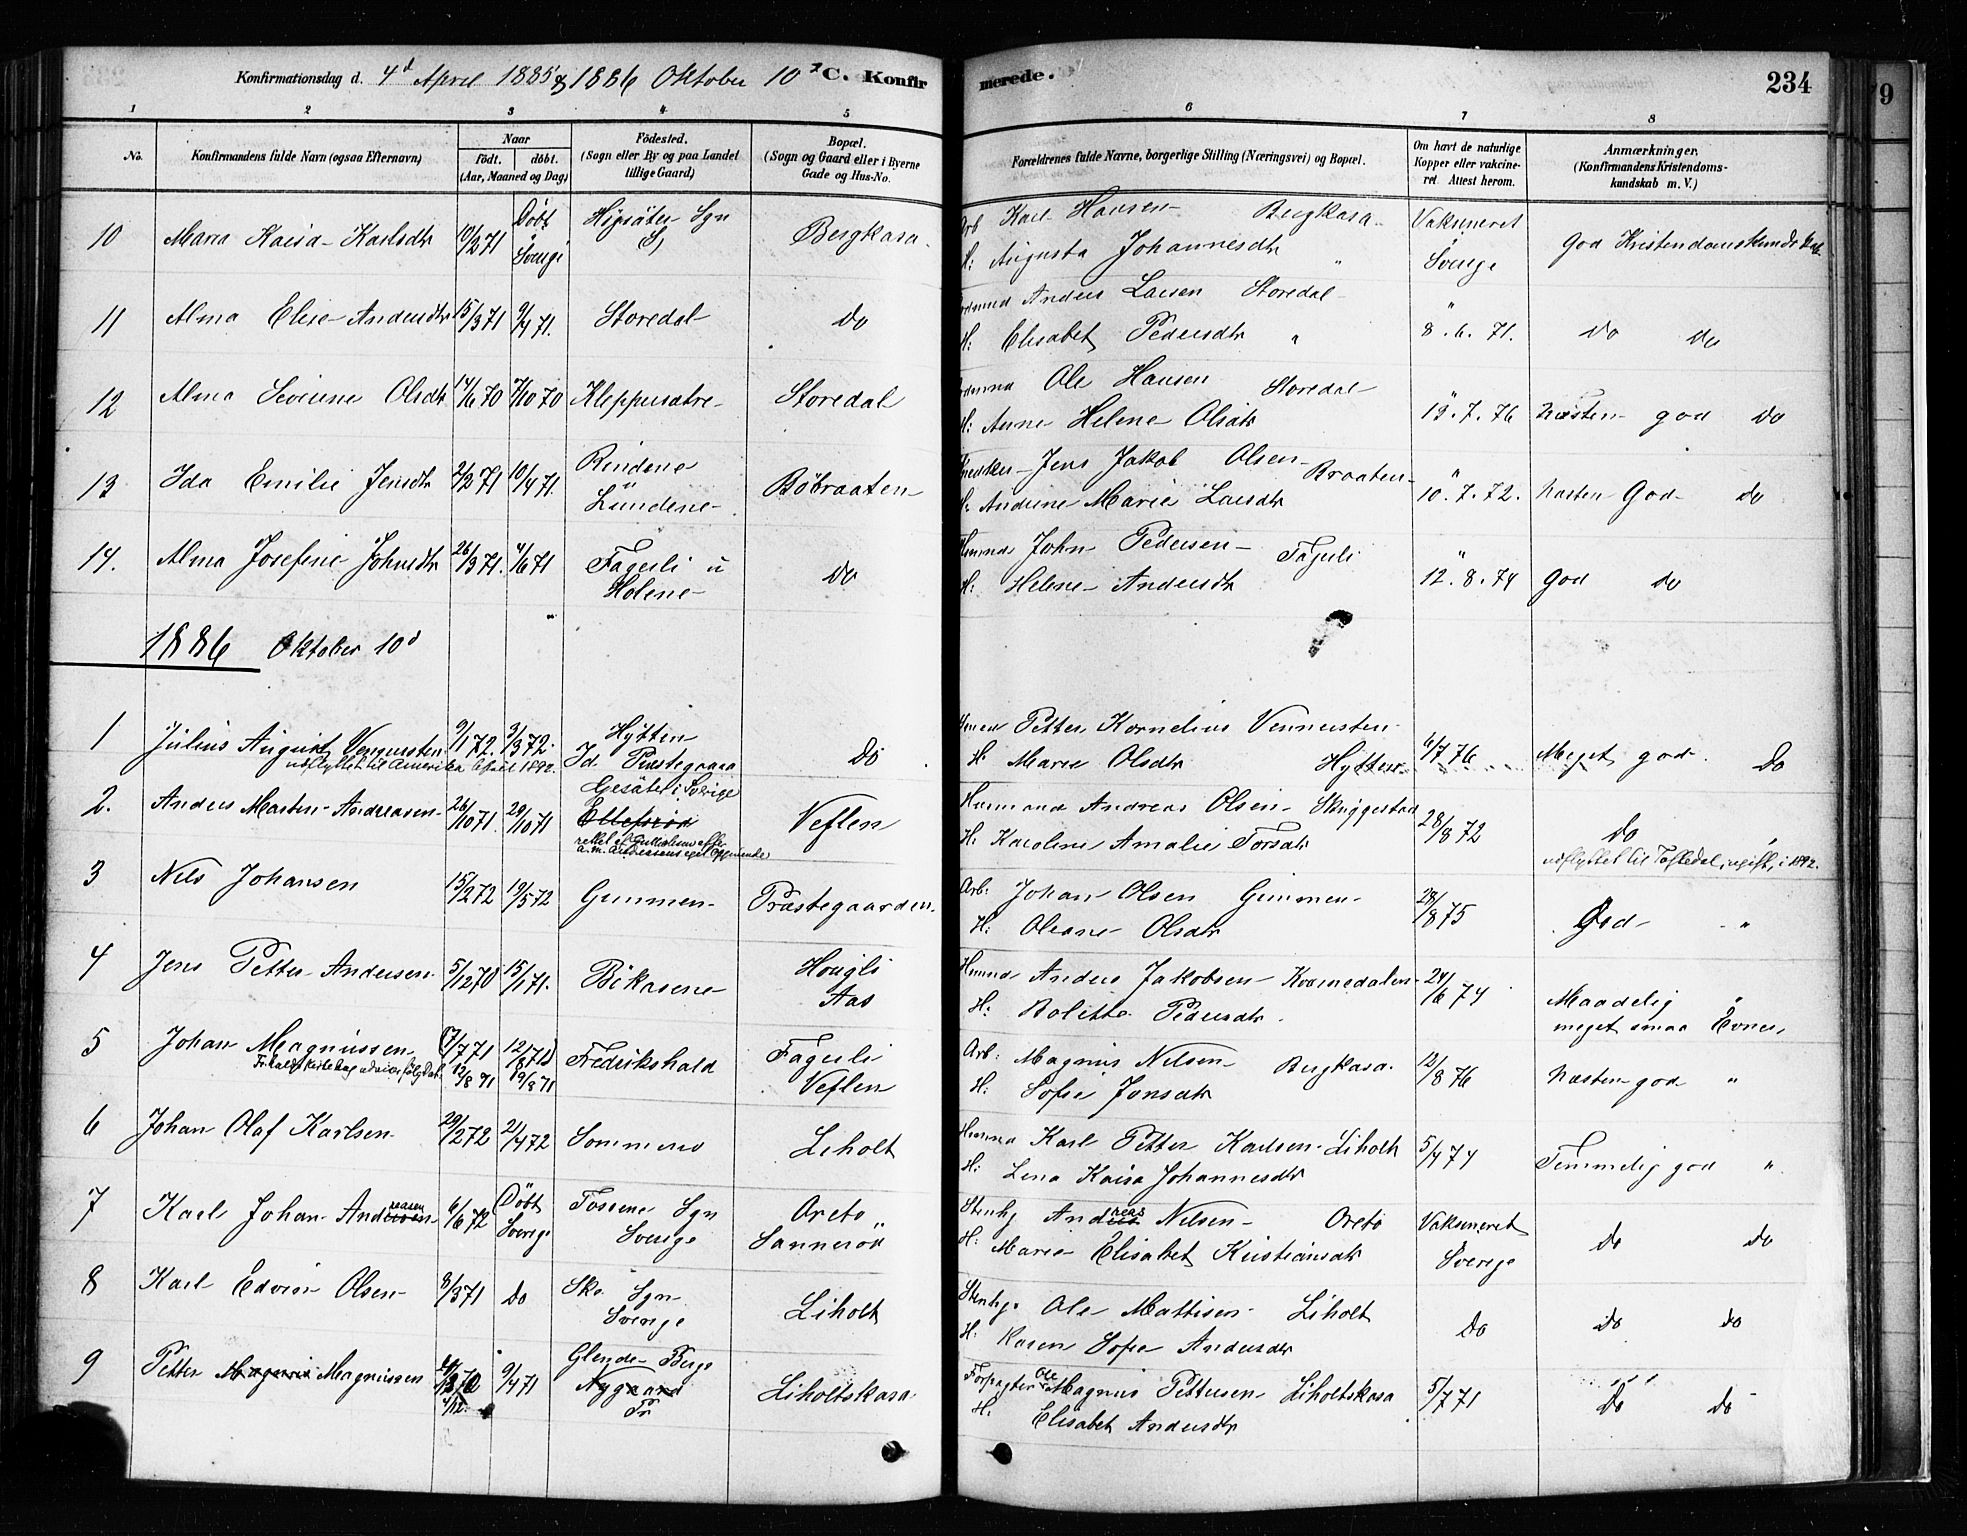 Konfirmationsdag d. 4d April 1885 & 1886 Oktober 10d C. Konfirmerede. 234
1 2 3 4 5 6 7 8
No. Konfirmandens fulde Navn (ogsaa Efternavn) Naar födt. döbt. (Aar, Maaned og Dag) Födested. (Sogn eller By og paa Landet tillige Gaard) Bopæl. (Sogn og Gaard eller i Byerne Gade og Hus-No. Forældrenes fulde Navne, borgerlige Stilling (Næringsvei) og Bopæl. Om havt de naturlige Kopper eller vakcineret. Attest herom. Anmærkninger. (Konfirmandens Kristendomskundskab m. V.)
10 Maria Kaisa Karlsdtr 19/2 71 Döbt Sverige Högsäter Sgn S, Bergkasa Arb Karl Hansen Bergkasa Vaksineret God Kristendomskundskab
H: Augusta Johannesdtr " Sverige
11 Alma Elise Andersdtr 15/3 71 9/4 71. Storedal Do Anders Larsen Storedal "
H: Elisabet Pedersdtr " 8.6.71. Do Do
12 Alma Severine Olsdtr 14/6 70 7/10 70 Kleppersætre Storedal Ole Hansen Storedal "
H: Anne Helene Olsdtr 19.7.76 Næsten god Do
13 Ida Emilie Jensdtr 2/2 71 10/4 71. Rindene u Lundene Böbraaten Jens Jakob Olsen Braaten "
H. Andrine Marie Larsdtr 10.7.72. Næsten God Do
14. Alma Josefine Johnsdtr 26/3 71. 4/6 71 Fagerli u Holene Do John Pedersen Fagerli "
H: Helene Andersdtr 12.8.74 God Do
1886 Oktober 10d
1 Julius August Vennersten 9/1 72. 3/3 72. Hytten Id Prestegaard Do Petter Kornelius Vennersten
udflyttet til Amerika 1892. H. Marie Olsdtr Hytten 6/7 76 Meget god Do
2. Anders Martin Andreasen 26/10 71. 29/10 71 Gesäter i Sverige Ellefsröd Veflen Husmand Andreas Olsen Skriggestad 28/8 72 Do "
a.m. Andreasens eget Opgivende H. Karoline Amalie Torsdtr udflyttet til Tistedal, ugift, i 1892.
3 Nils Johansen 15/2 72 19/5 72 Gunmen Præstegaarden Arb: Johan Olsen Gimmen 28/8 75 God "
H: Oleane Olsdtr
4 Jens Petter Andersen 5/12 70 15/1 71. Bikasene Hougli Aas Husmd Anders Jakobsen Kvernedalen 24/6 74 Maadelig "
H: Bolette Pedersdtr meget smaa Evner,
5 Johan Magnussen (7/7 71 12/8 71) Fredrikshald Fagerli Veflen Arb: Magnus Nilsen Bergkasa 12/8 76 Næsten god "
12/8 71 19/8 71 H: Sofie Jonsdtr
6 Johan Olaf Karlsen 29/2 72 21/4 72 Sommerro Liholt Husmd Karl Petter Karlsen Liholt 5/4 74 Temmelig god "
H: Lena Kaisa Johannesdtr
7 Karl Johan Andreasen 6/6 72 Döbt Sverige Tossene Sgn Sverige Oreto Sanneröd Stenhg Andreas Nilsen Oreto Vaksineret Do Do
H. Marie Elisabet Kristiansdtr Sverige
8 Karl Edvin Olsen 8/3 71 Do Ske Sgn Sverige Liholt Stenhg. Ole Mattisen Liholt Do Do Do
H. Karen Sofie Andersdtr
9 Petter Magnus Magnussen 9/4 71 Glende Berg Nygaard Tr Liholtskasa Forpagter Ole Magnus Pettersen Liholtskasa 5/7 71 Do Do
H. Elisabet Andersdtr